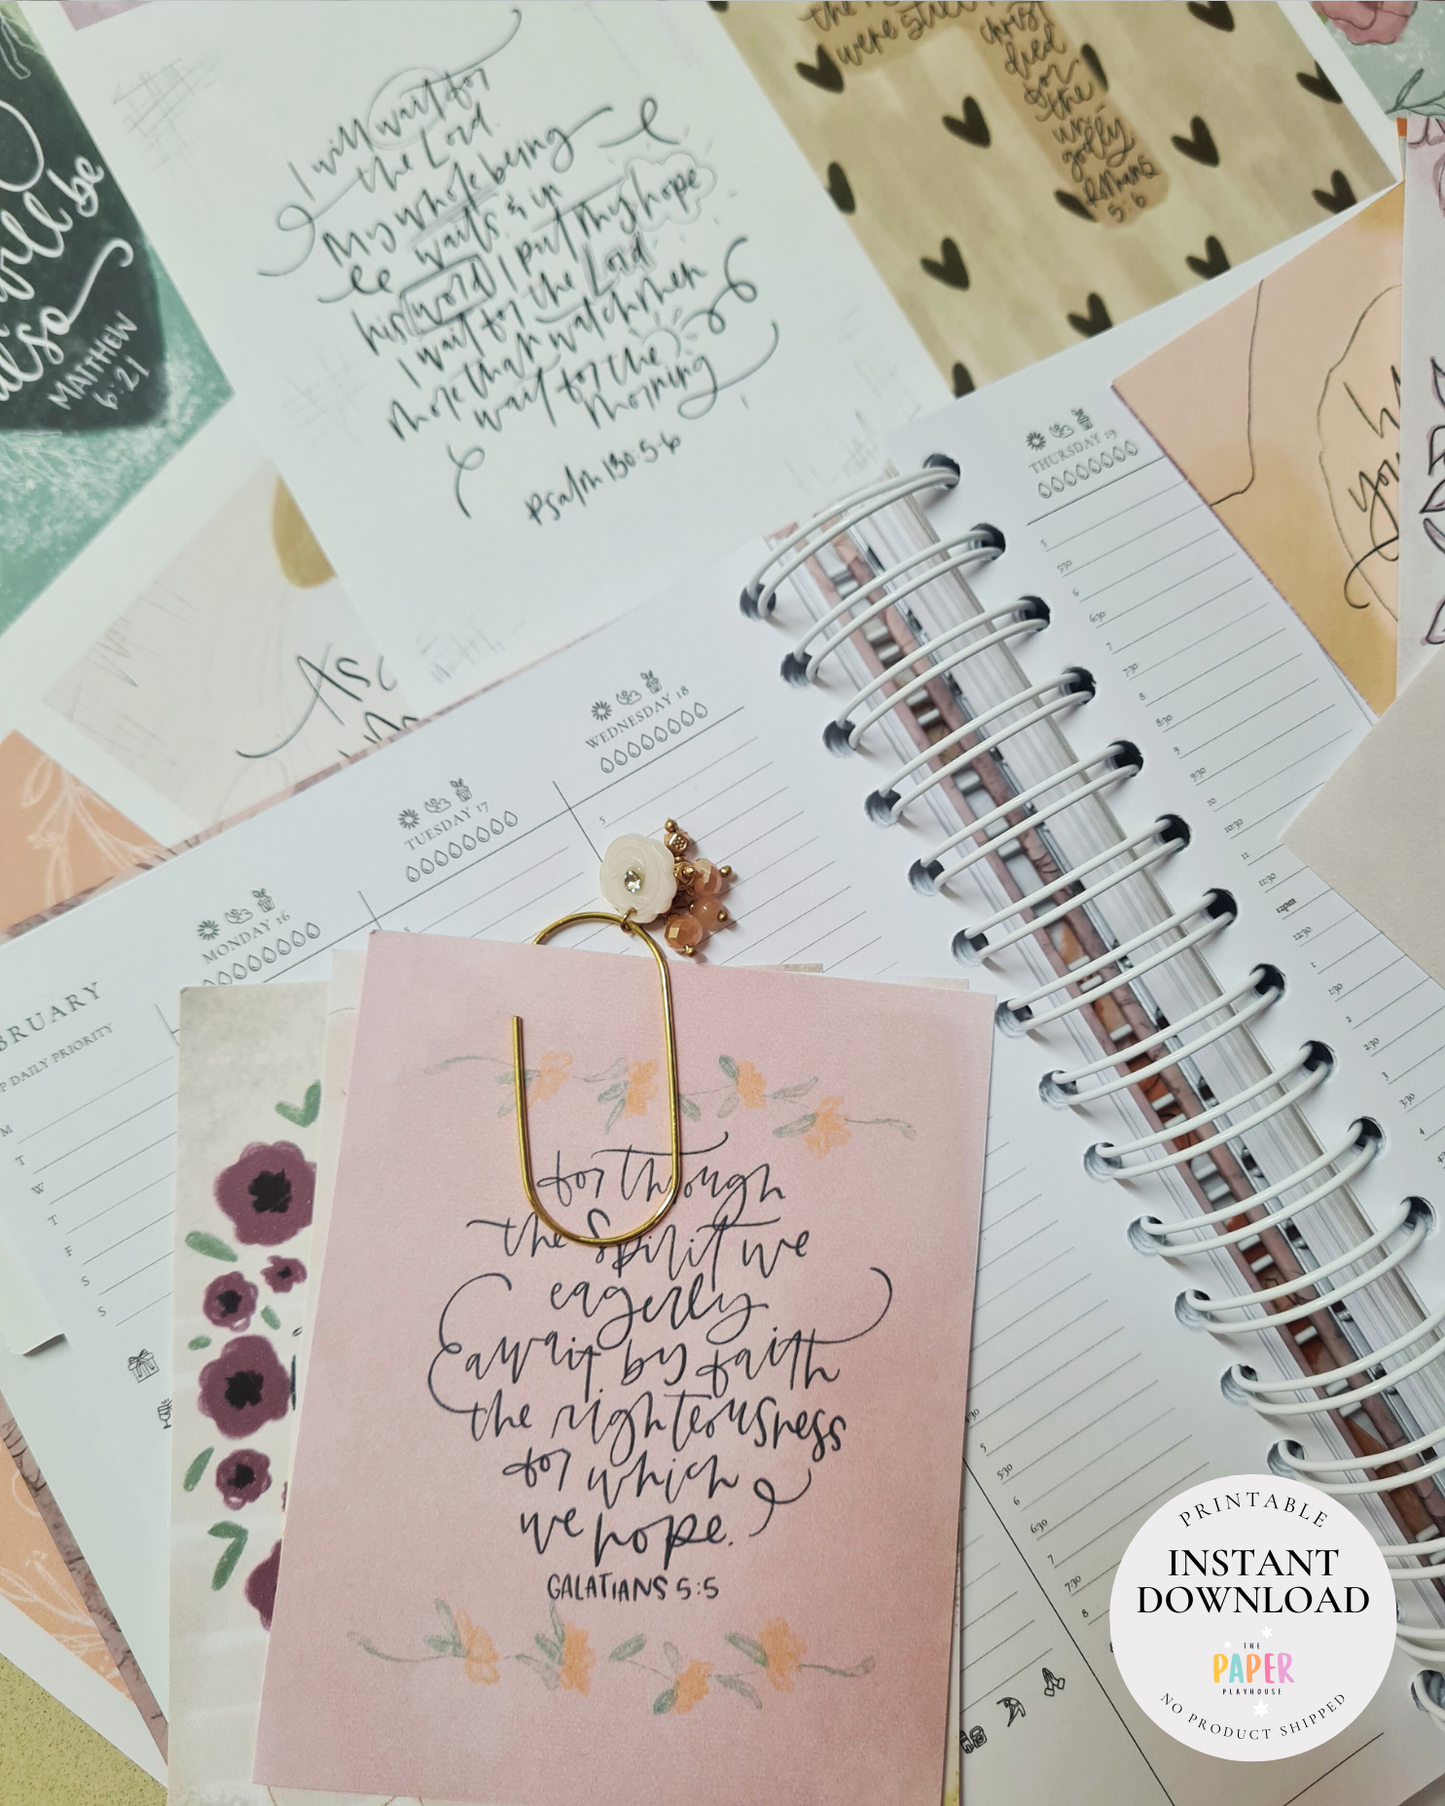 will be
also
MATTHEW
6:21
I will wait for
the Lord.
My whole being
waits, & in
his word I put my hope
I wait for the Lord
more than watchmen
wait for the
morning
Psalm 130:5-6
were still
christ
died
for
the
un-
godly.
Romans
5:6
THURSDAY 19
5
5:30
6
6:30
7
7:30
8
8:30
9
9:30
10
10:30
11
11:30
12pm
12:30
1
1:30
2
2:30
3
3:30
4
WEDNESDAY 18
5
TUESDAY 17
MONDAY 16
BRUARY
P DAILY PRIORITY
M
T
W
T
F
S
S
for through
the Spirit we
eagerly
await by faith
the righteousness
for which
we hope.
GALATIANS 5:5
5
5:30
6
6:30
7
7:30
8
PRINTABLE
INSTANT
DOWNLOAD
THE
PAPER
PLAYHOUSE
NO PRODUCT SHIPPED